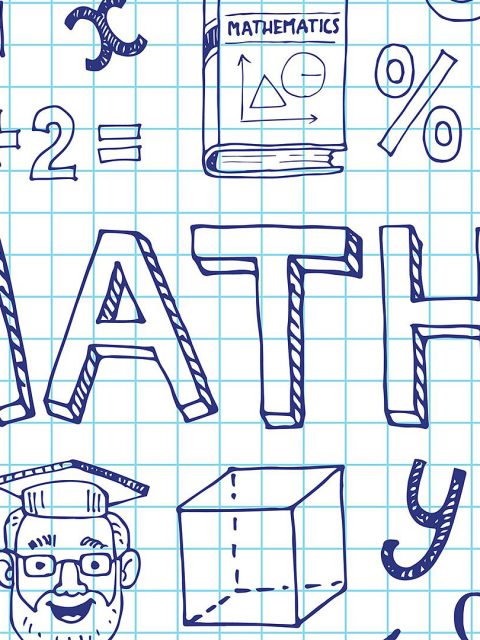 x
MATHEMATICS
%
+2=
MATH
y